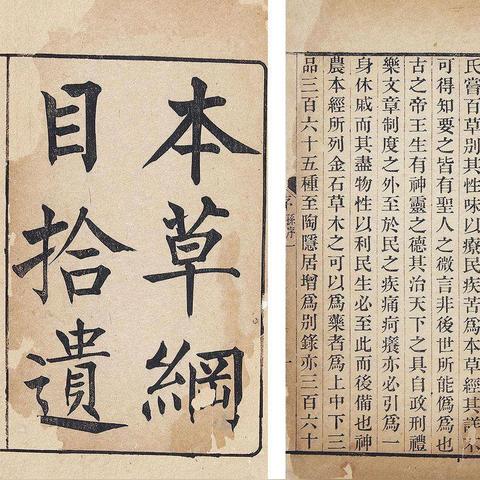 本草綱
目拾遺
氏嘗百草别其性味以療民疾苦爲本草經其詳不
可得知要之皆有聖人之微言非後世所能僞爲也
古之帝王生有神靈之德其治天下之具自政刑禮
樂文章制度之外至於民之疾痛疴癢亦必引爲一
身休戚而其盡物性以利民生必至此而後備也神
農本經所列金石草木之可以爲藥者爲上中下三
品三百六十五種至陶隱居增爲别錄亦三百六十